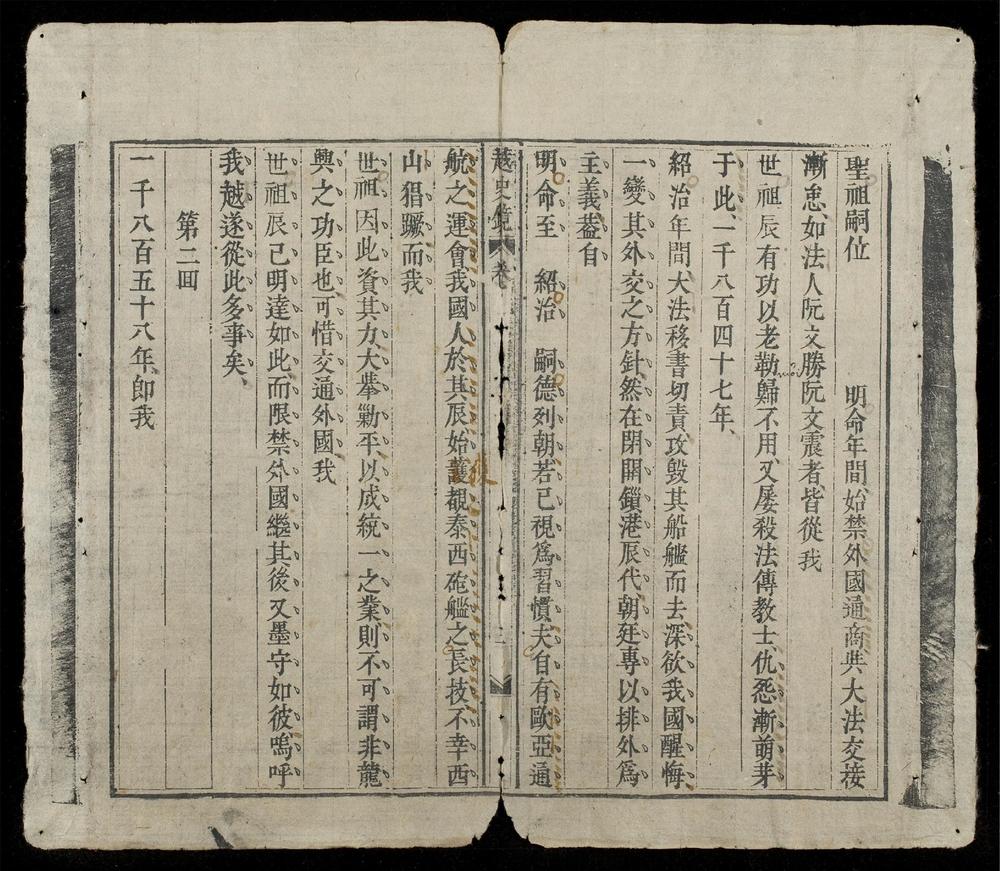 聖祖嗣位　明命年間、始禁外國通商、其大法交接
漸怠、如法人阮文勝阮文震者、皆從我
世祖辰有功以老勒歸不用又屢殺法傳教士、仇怨漸萌芽
于此、一千八百四十七年、
紹治年間、大法移書切責、攻毀其船艦而去、深欲我國醒悔
一變其外交之方針、然在閉關鎖港辰代、朝廷專以排外爲
主義、蓋自
明命至　紹治　嗣德列朝若已視爲習慣、夫自有歐亞通
越史鏡　卷　三
航之運會、我國人於其辰、始護覩泰西砲艦之長技、不幸西
後
山猖蹶而我
世祖因此資其力、大擧勦平、以成統一之業、則不可謂非龍
興之功臣也、可惜交通外國、我
世祖辰已明達如此、而限禁外國繼其後又墨守如彼嗚呼
我越遂從此多事矣、
第二回
一千八百五十八年、卽我